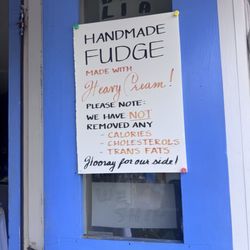 HANDMADE
FUDGE
MADE WITH
Heavy Cream!
PLEASE NOTE:
WE HAVE NOT
REMOVED ANY
- CALORIES
- CHOLESTEROLS
- TRANS FATS
Hooray for our side!